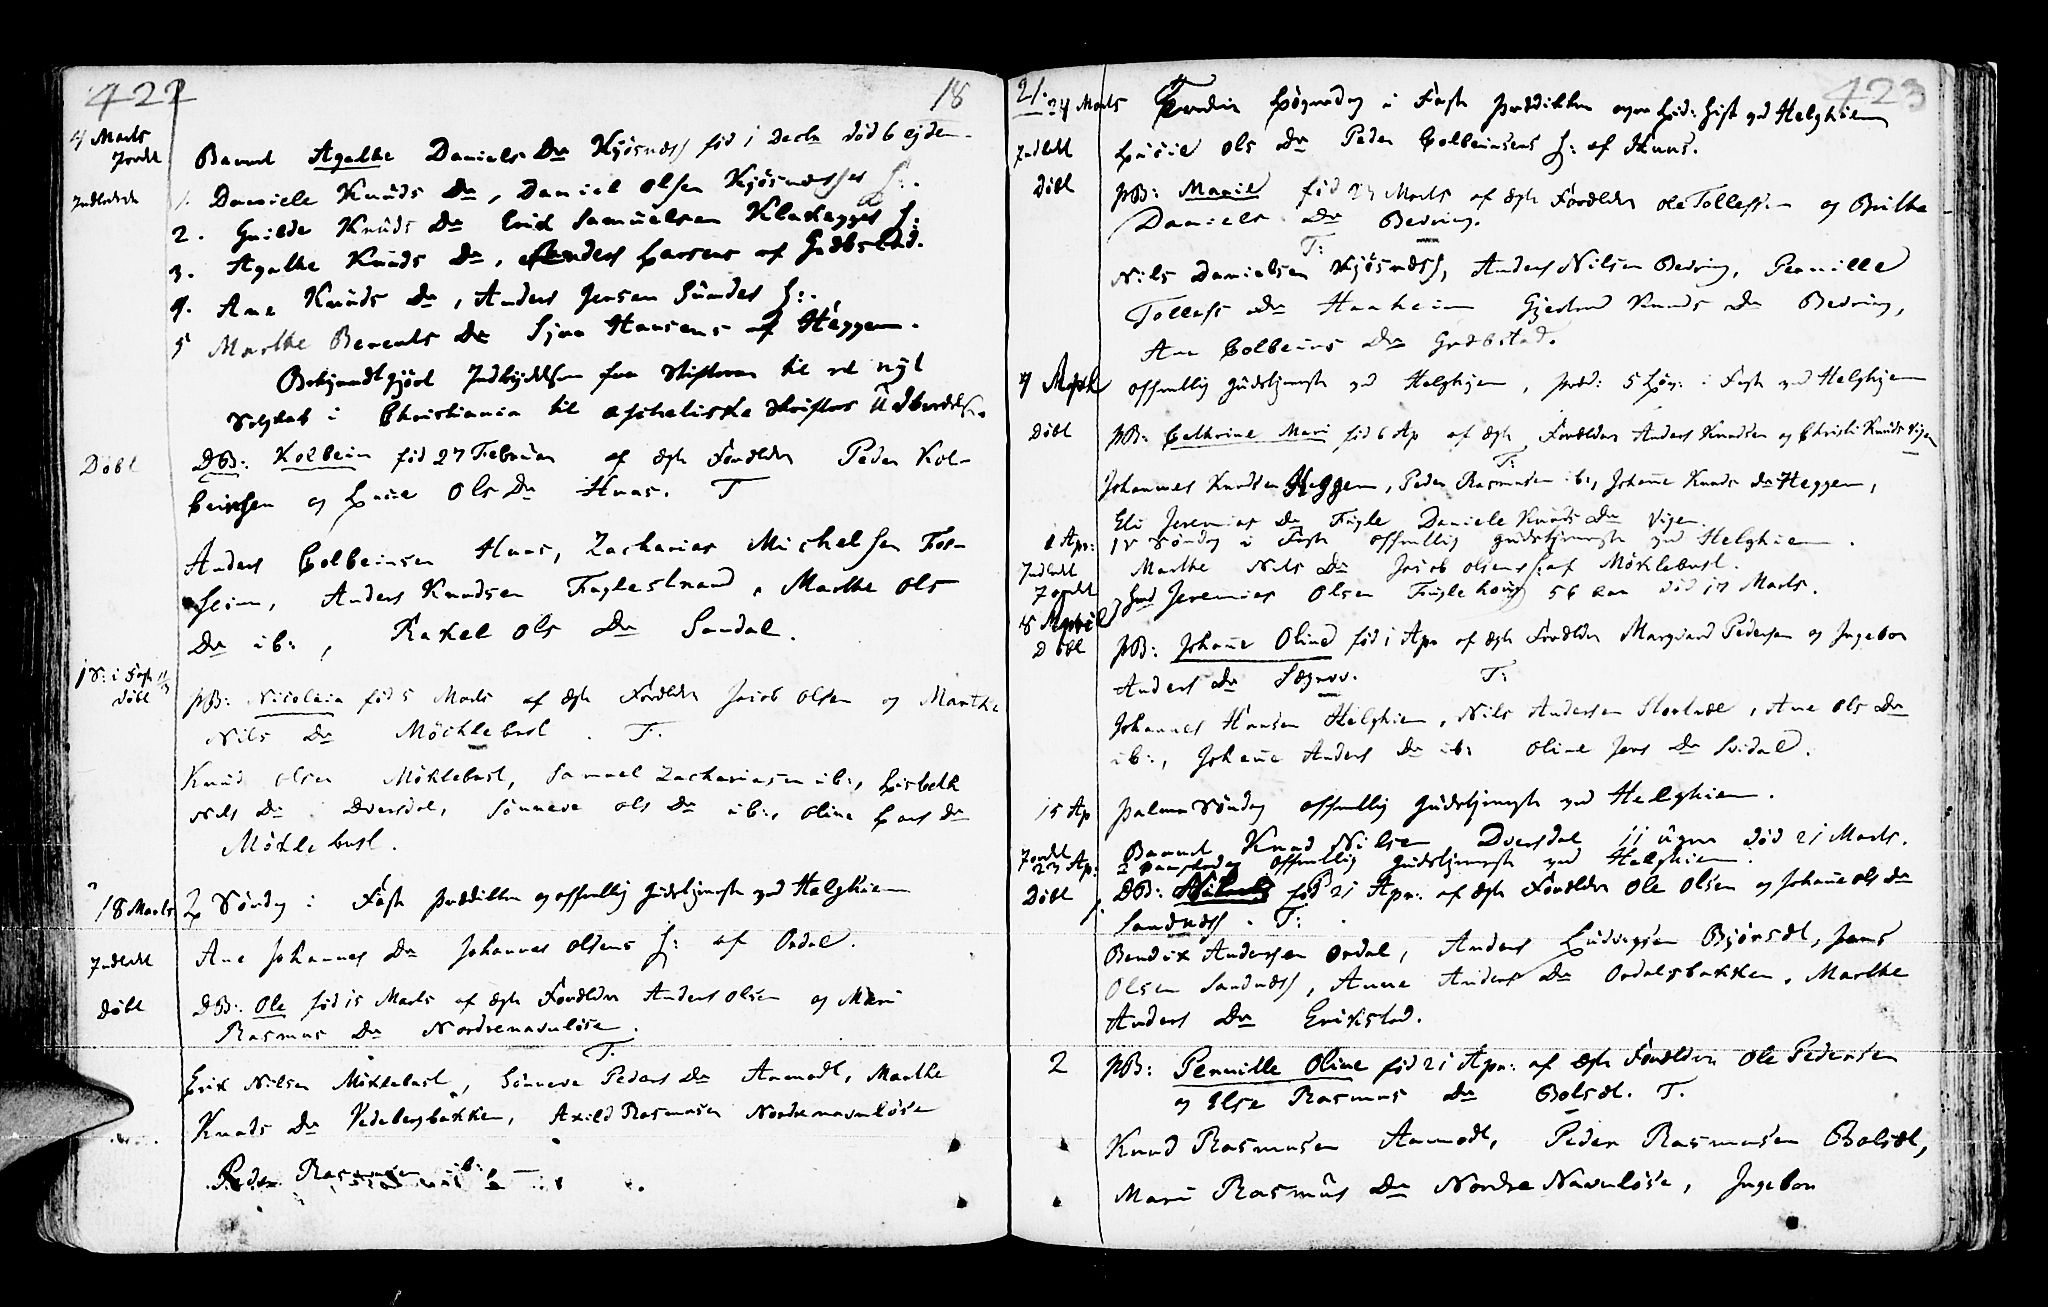 422
18
4 Marts
Jordet Barnet Agathe Daniels Dr Kjøsnæss fød 1 Decbr død 6 ejden.
Indledede 1. Daniele Knuds Dr, Daniel Olsen Kjøsnæsses H:.
2. Gurilde Knuds Dr Erik Samuelsen Klakegges H:
3. Agathe Knuds Dr, Anders Larsens af Gredbstad.
4. Ane Knuds Dr, Anders Jensen Sundes H:.
5 Marthe Berents Dr Sjur Hansens af Heggem.
Bekjendtgjort Indbydelsen fra Stifteren til et nyt
Selskab i Christiania til apostoliske Skrifters Udbredelse.
Døbt DB: Kolbein fød 27 Februar af ægte Forældre Peder Kol-
beinsen og Lucie Ols Dr Huus. T
Anders Colbeinsen Huus, Zacharias Michelsen Fos-
heim, Anders Knudsen Fuglestrand, Marthe Ols
Dr ib:, Rakel Ols Dr Sandal.
1 S: i Fast 11/3
Døbt PB: Nicolaia fød 5 Marts af ægte Forældre Jacob Olsen og Marthe
Nils Dr Möchlebust. T:
Knud Olsen Möklebust, Samuel Zachariasen ib:, Lisbeth
Nils Dr Dversdal, Sønneve Ols Dr ib:, Oline Lars Dr
Möklebust.
18 Marts 2 Søndag i Faste prædiken og offentlig Gudstjeneste ved Helghiem
Indledt Ane Johannes Dr Johannes Olsens H: af Ordal.
Døbt DB: Ole fød 15 Marts af ægte Forældre Anders Olsen og Mari
Rasmus Dr Nordrenavnløse.
T:
Erik Nilsen Möklebust, Sönneve Peders Dr Aamodt, Marthe
Knuds Dr Vedebergbakken, Axild Rasmusen Nordrenavnløse
Peder Rasmusen ib:
423
21.
24 Marts Tredie Løverdag i Faste prædiken ved Helghiem
Indledt Lucie Ols Dr Peder Colbeinsens H: af Huus.
Døbt PB: Marie fød 24 Marts af ægte Forældre Ole Tollefsen og Brithe
Daniels Dr Bedring.
T:
Nils Danielsen Kjøsnæss, Anders Nilsen Bedring, Pernille
Tollefs Dr Haaheim Gjertrud Knuds Dr Bedring,
Ane Colbeins Dr Gredbstad.
7 April offentlig Gudstjeneste ved Helghjem, præd: 5 Løv: i Faste ved Helghjem
Døbt PB: Cathrine Mari fød 6 Ap af ægte Forældre Anders Knudsen og Christi Knuds Vigen
T:
Johannes Knudsen Heggem, Peder Rasmusen ib:, Johanne Knuds Dr Heggem,
Eli Jeremias Dr Fugle Daniele Knuds Dr Vigen.
1 Apr: Søndag i Faste offentlig Gudstjeneste ved Helghiem.
Indledt Marthe Nils Dr Jacob Olsens H: af Möklebust.
Jordet Gmd Jeremias Olsen Fuglehoug 56 Aar død 17 Marts.
8 April
Døbt PB: Johanne Oline fød 1 Apr af ægte Forældre Marqvard Pedersen og Ingebor
Anders Dr Sægrov. T:
Johannes Hansen Helghiem, Nils Andersen Slaatræe, Ane Ols Dr
ib:, Johanne Anders Dr ib: Oline Jens Dr Svidal.
15 Ap Palmesøndag offentlig Gudstjeneste ved Helghiem.
Jordet Barnet Knud Nilsen Dversdal 11 Uger død 21 Marts.
23 Ap: 2 Paaskedag offentlig Gudstjeneste ved Helghiem.
Døbt 1. DB: fød 21 Apr: af ægte Forældre Ole Olsen og Johanne Ols Dr
Sandnæss. T:
Bendix Andersen Ordal, Anders Ludvigsen Bjørsæt, Jens
Olsen Sandnæss, Anne Anders Dr Ordalsbakken, Marthe
Anders Dr Erikstad.
2 PB: Pernille Oline fød 21 Apr: af ægte Forældre Ole Pedersen
og Else Rasmus Dr Bolsæt. T.
Knud Rasmusen Aamodt, Peder Rasmusen Bolsæt,
Mari Rasmus Dr Nordre Navnløse, Ingebor